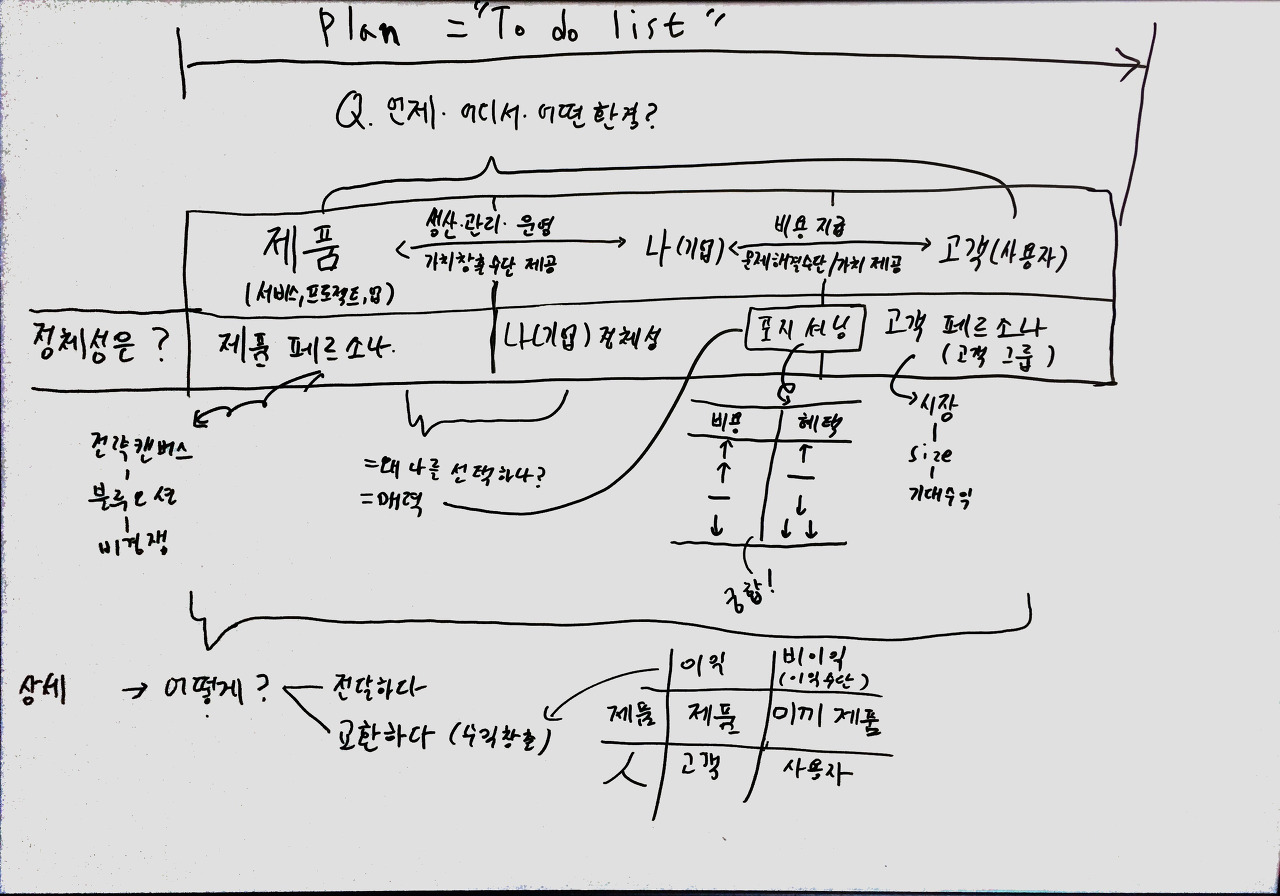 Plan = "To do list"
Q. 언제. 어디서. 어떤 환경?
제품
(서비스, 프로젝트, 업)
생산·관리·운영
가치창출수단 제공
나(기업)
비용 지급
문제해결수단/가치 제공
고객(사용자)
정체성은?
제품 페르소나.
나(기업) 정체성
포지셔닝
고객 페르소나
(고객 그룹)
전략캔버스
블루오션
비경쟁
=왜 나를 선택하나?
=매력
비용
혜택
궁합!
시장
size
기대수익
상세
어떻게?
전달하다
교환하다 (수익창출)
이익
비이익
(이익수단)
제품
제품
미끼 제품
고객
사용자